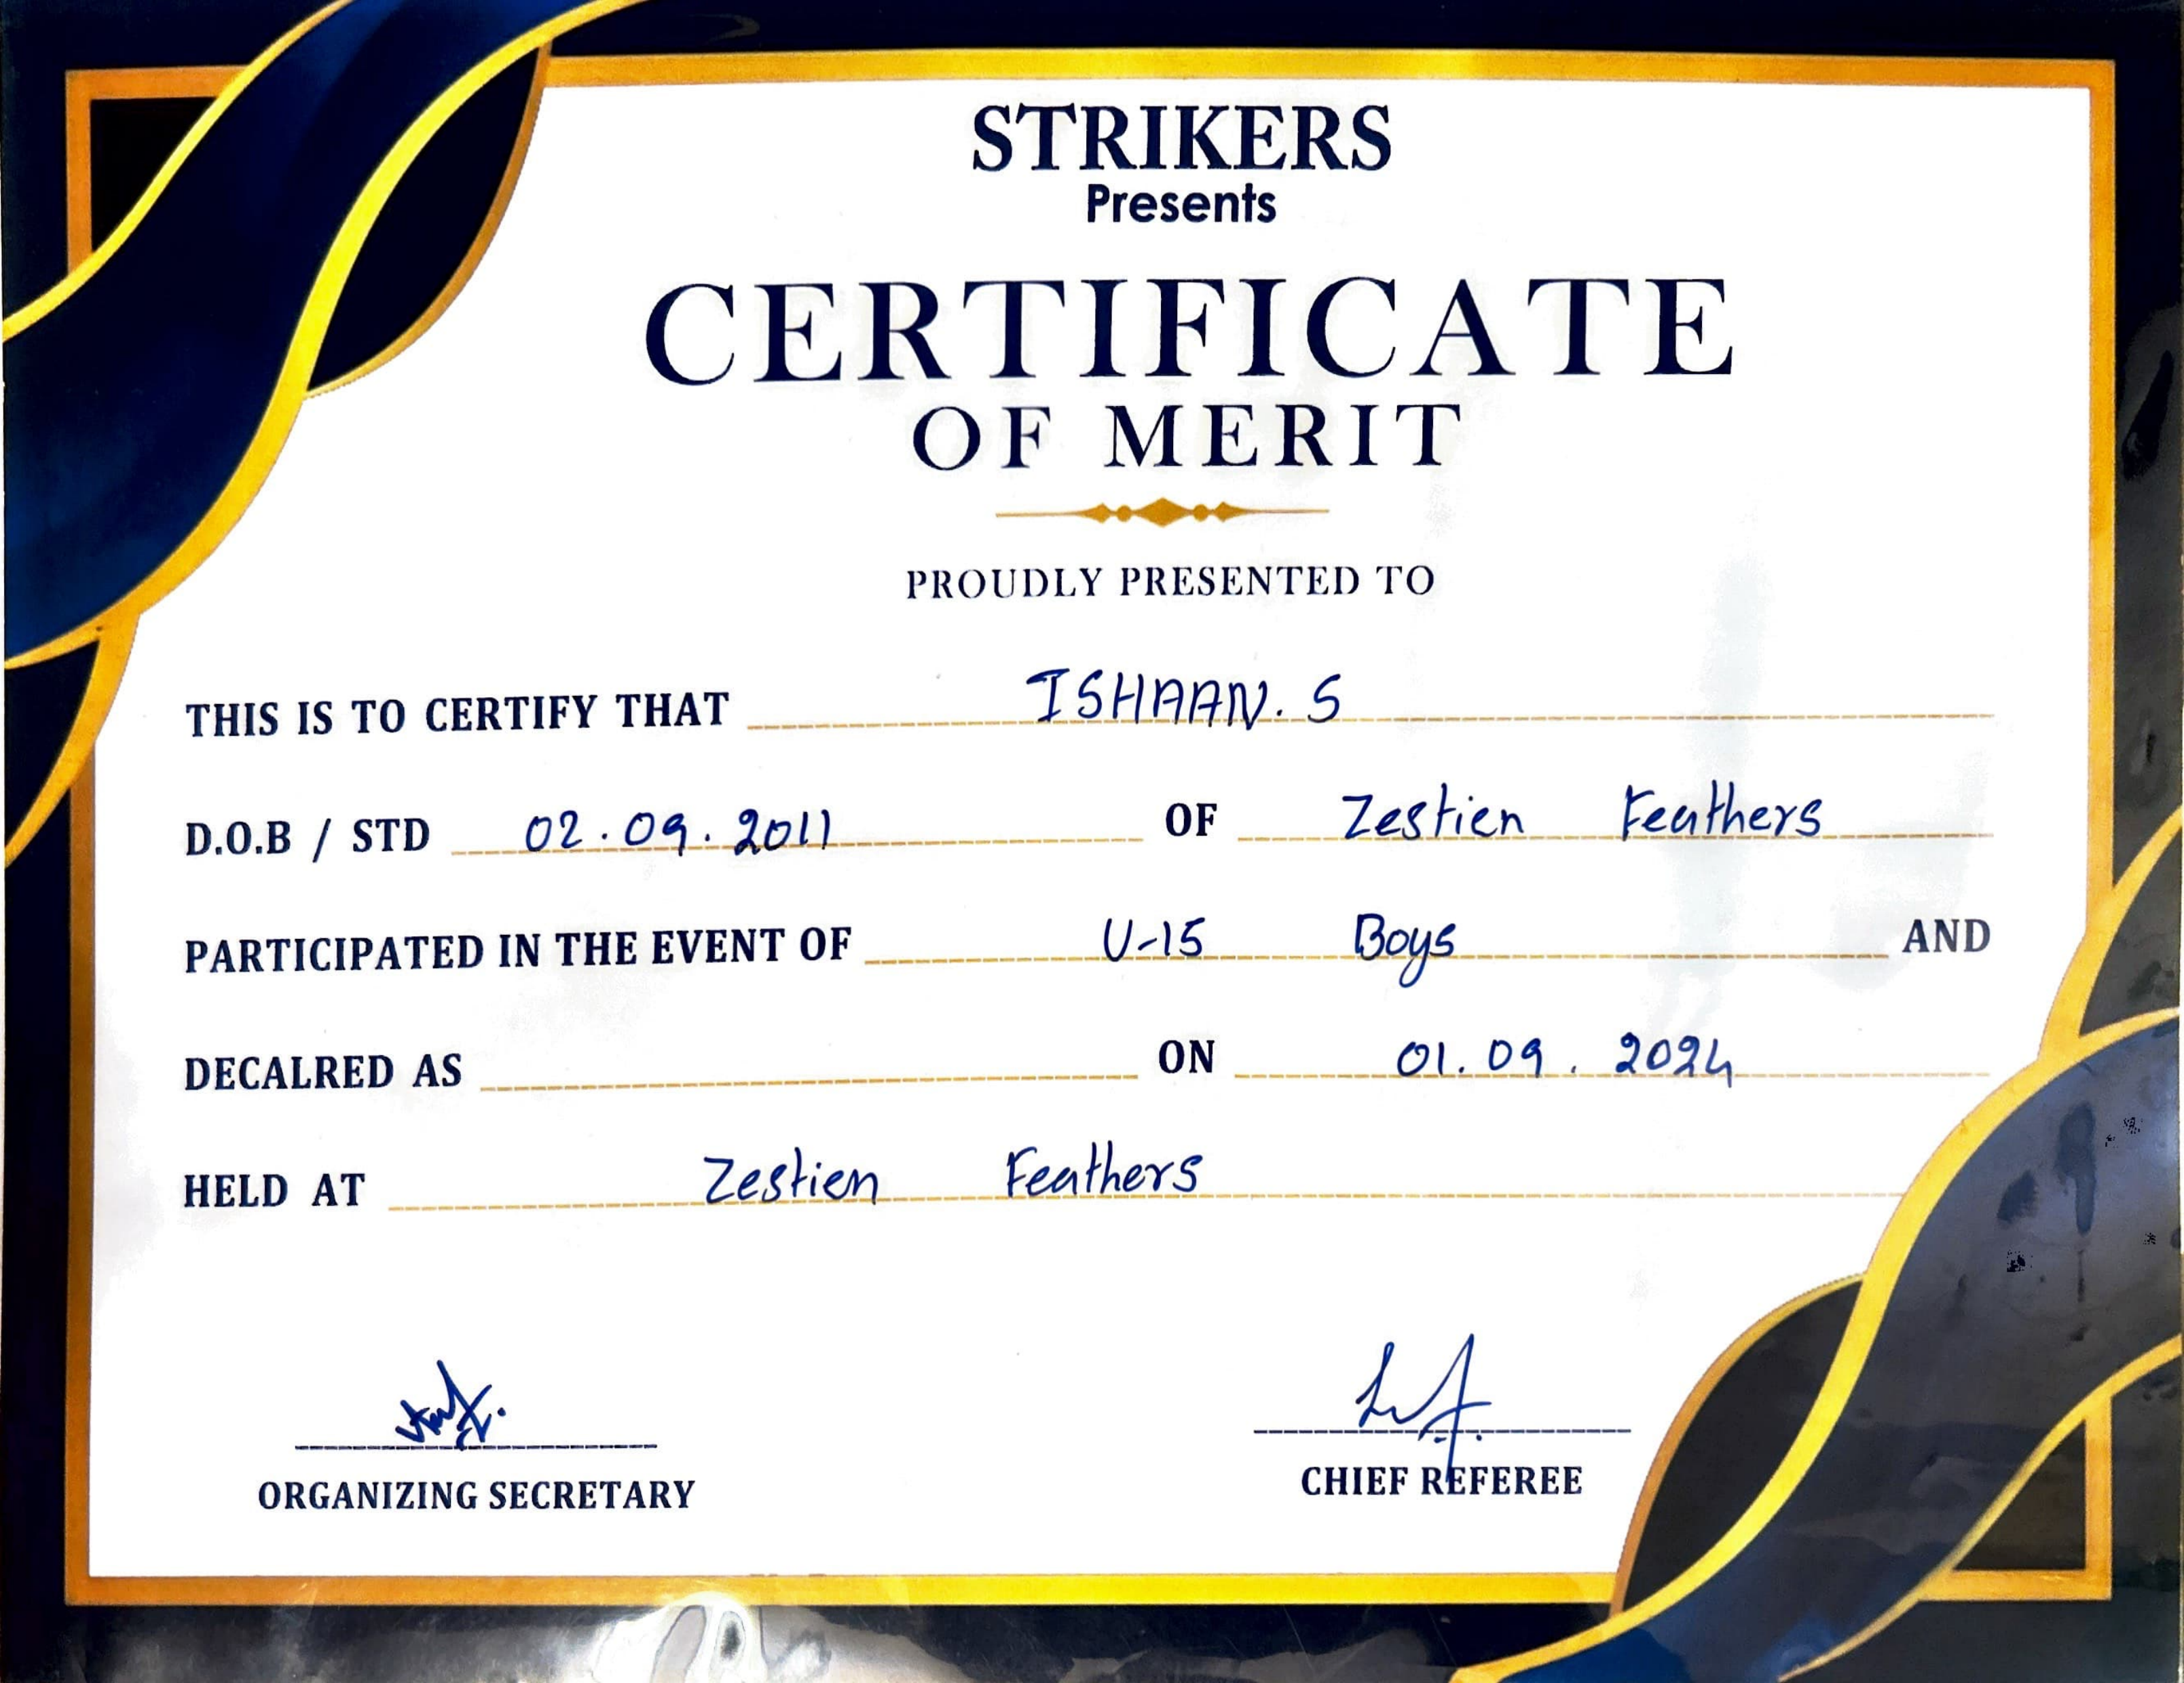 STRIKERS
Presents
CERTIFICATE
OF MERIT
PROUDLY PRESENTED TO
THIS IS TO CERTIFY THAT ISHAAN. S
D.O.B / STD 02.09.2011 OF Zestien Feathers
PARTICIPATED IN THE EVENT OF U-15 Boys AND
DECALRED AS ON 01.09.2024
HELD AT Zestien Feathers
ORGANIZING SECRETARY CHIEF REFEREE